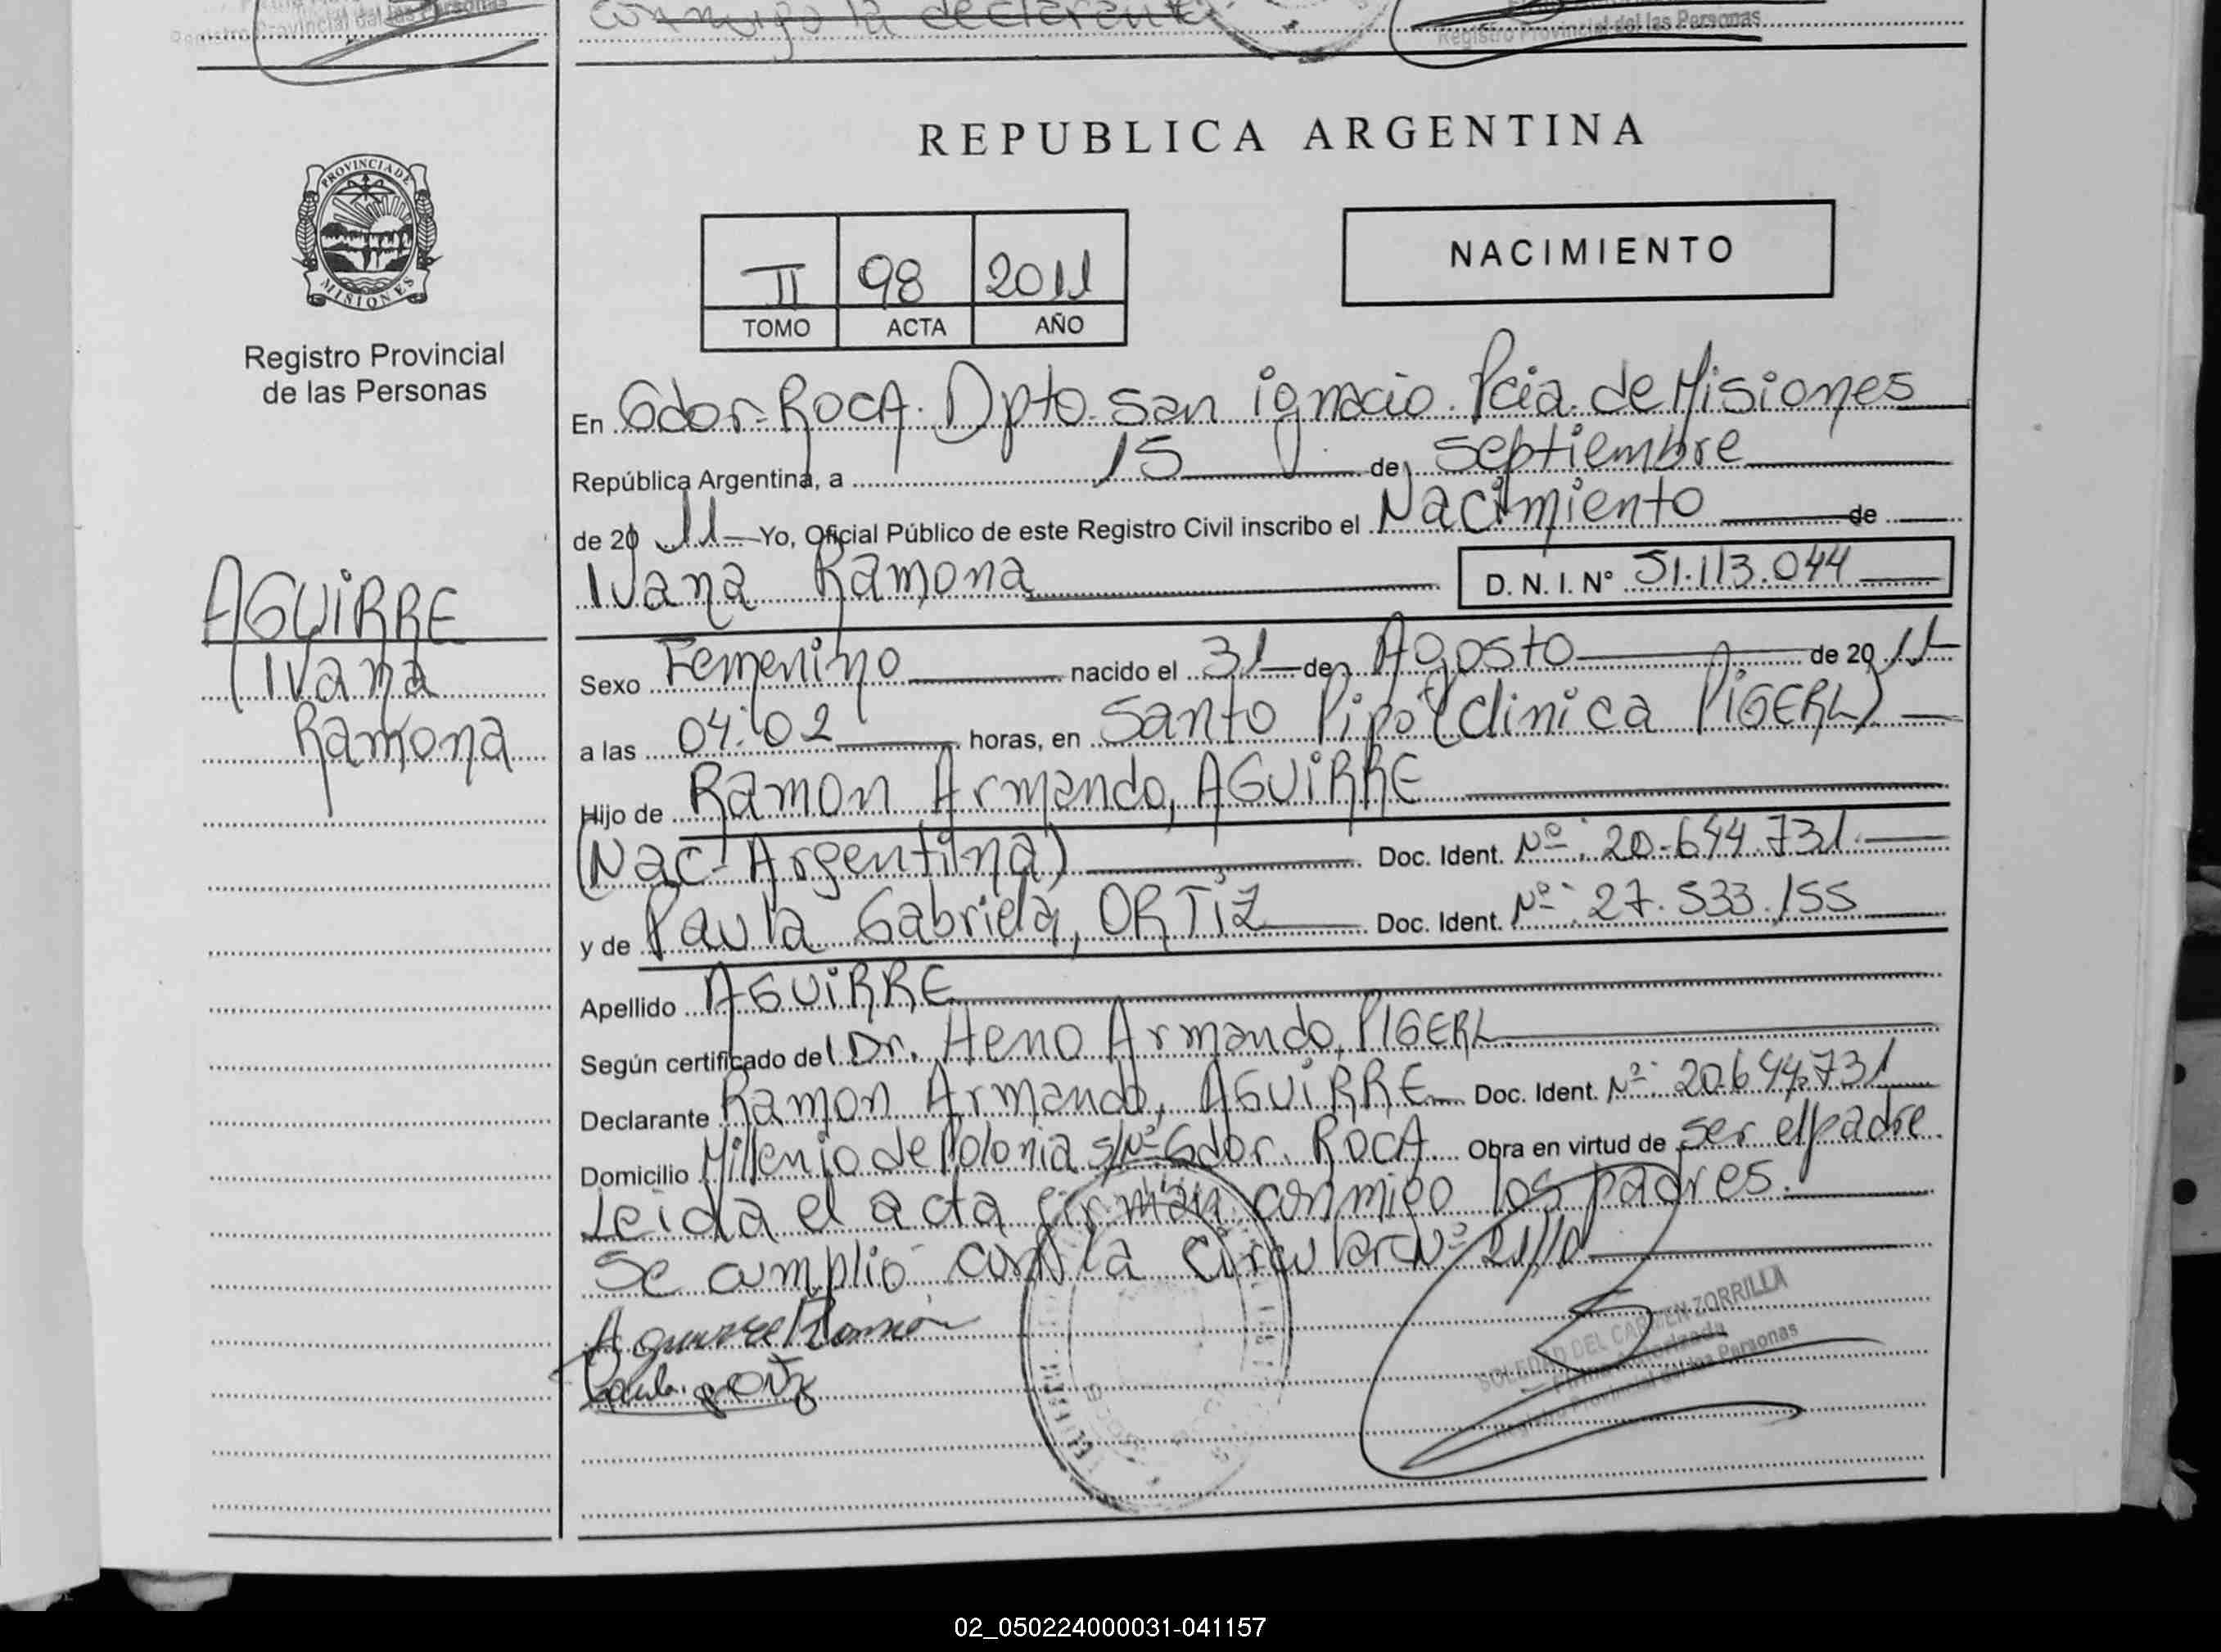 conmigo la declarante
Registro Provincial del las Personas
Registro Provincial del las Personas
REPUBLICA ARGENTINA
PROVINCIA DE
MISIONES
Registro Provincial
de las Personas
NACIMIENTO
II 98 2011
TOMO ACTA AÑO
En Gdor. ROCA. Dpto. San ignacio. Pcia. de Misiones
República Argentina, a 15 de septiembre
de 20 11 Yo, Oficial Público de este Registro Civil inscribo el Nacimiento de
Ivana Ramona D. N. I. N° 51.113.044
AGUiRRE
Ivana
Ramona
Sexo Femenino nacido el 31 de Agosto de 20 11
a las 04:02 horas, en Santo Pipo (Clinica PiGERL)
Hijo de Ramon Armando, AGUiRRE
(Nac- Argentina) Doc. Ident. Nº: 20.644.731.
y de Paula Gabriela, ORTiZ Doc. Ident. Nº: 27.533.155
Apellido AGUiRRE
Según certificado del Dr. Heno Armando, PIGERL
Declarante Ramon Armando, AGUiRRE Doc. Ident. Nº: 20.644.731
Domicilio Millenio de Polonia s/Nº Gdor. ROCA Obra en virtud de ser el padre.
Leida el acta firman conmigo los padres.
Se cumplio con la Circular Nº 21/10
Aguirre Ramon
SOLEDAD DEL CARMEN ZORRILLA
Firma Autorizada
Registro Provincial del las Personas
02_050224000031-041157